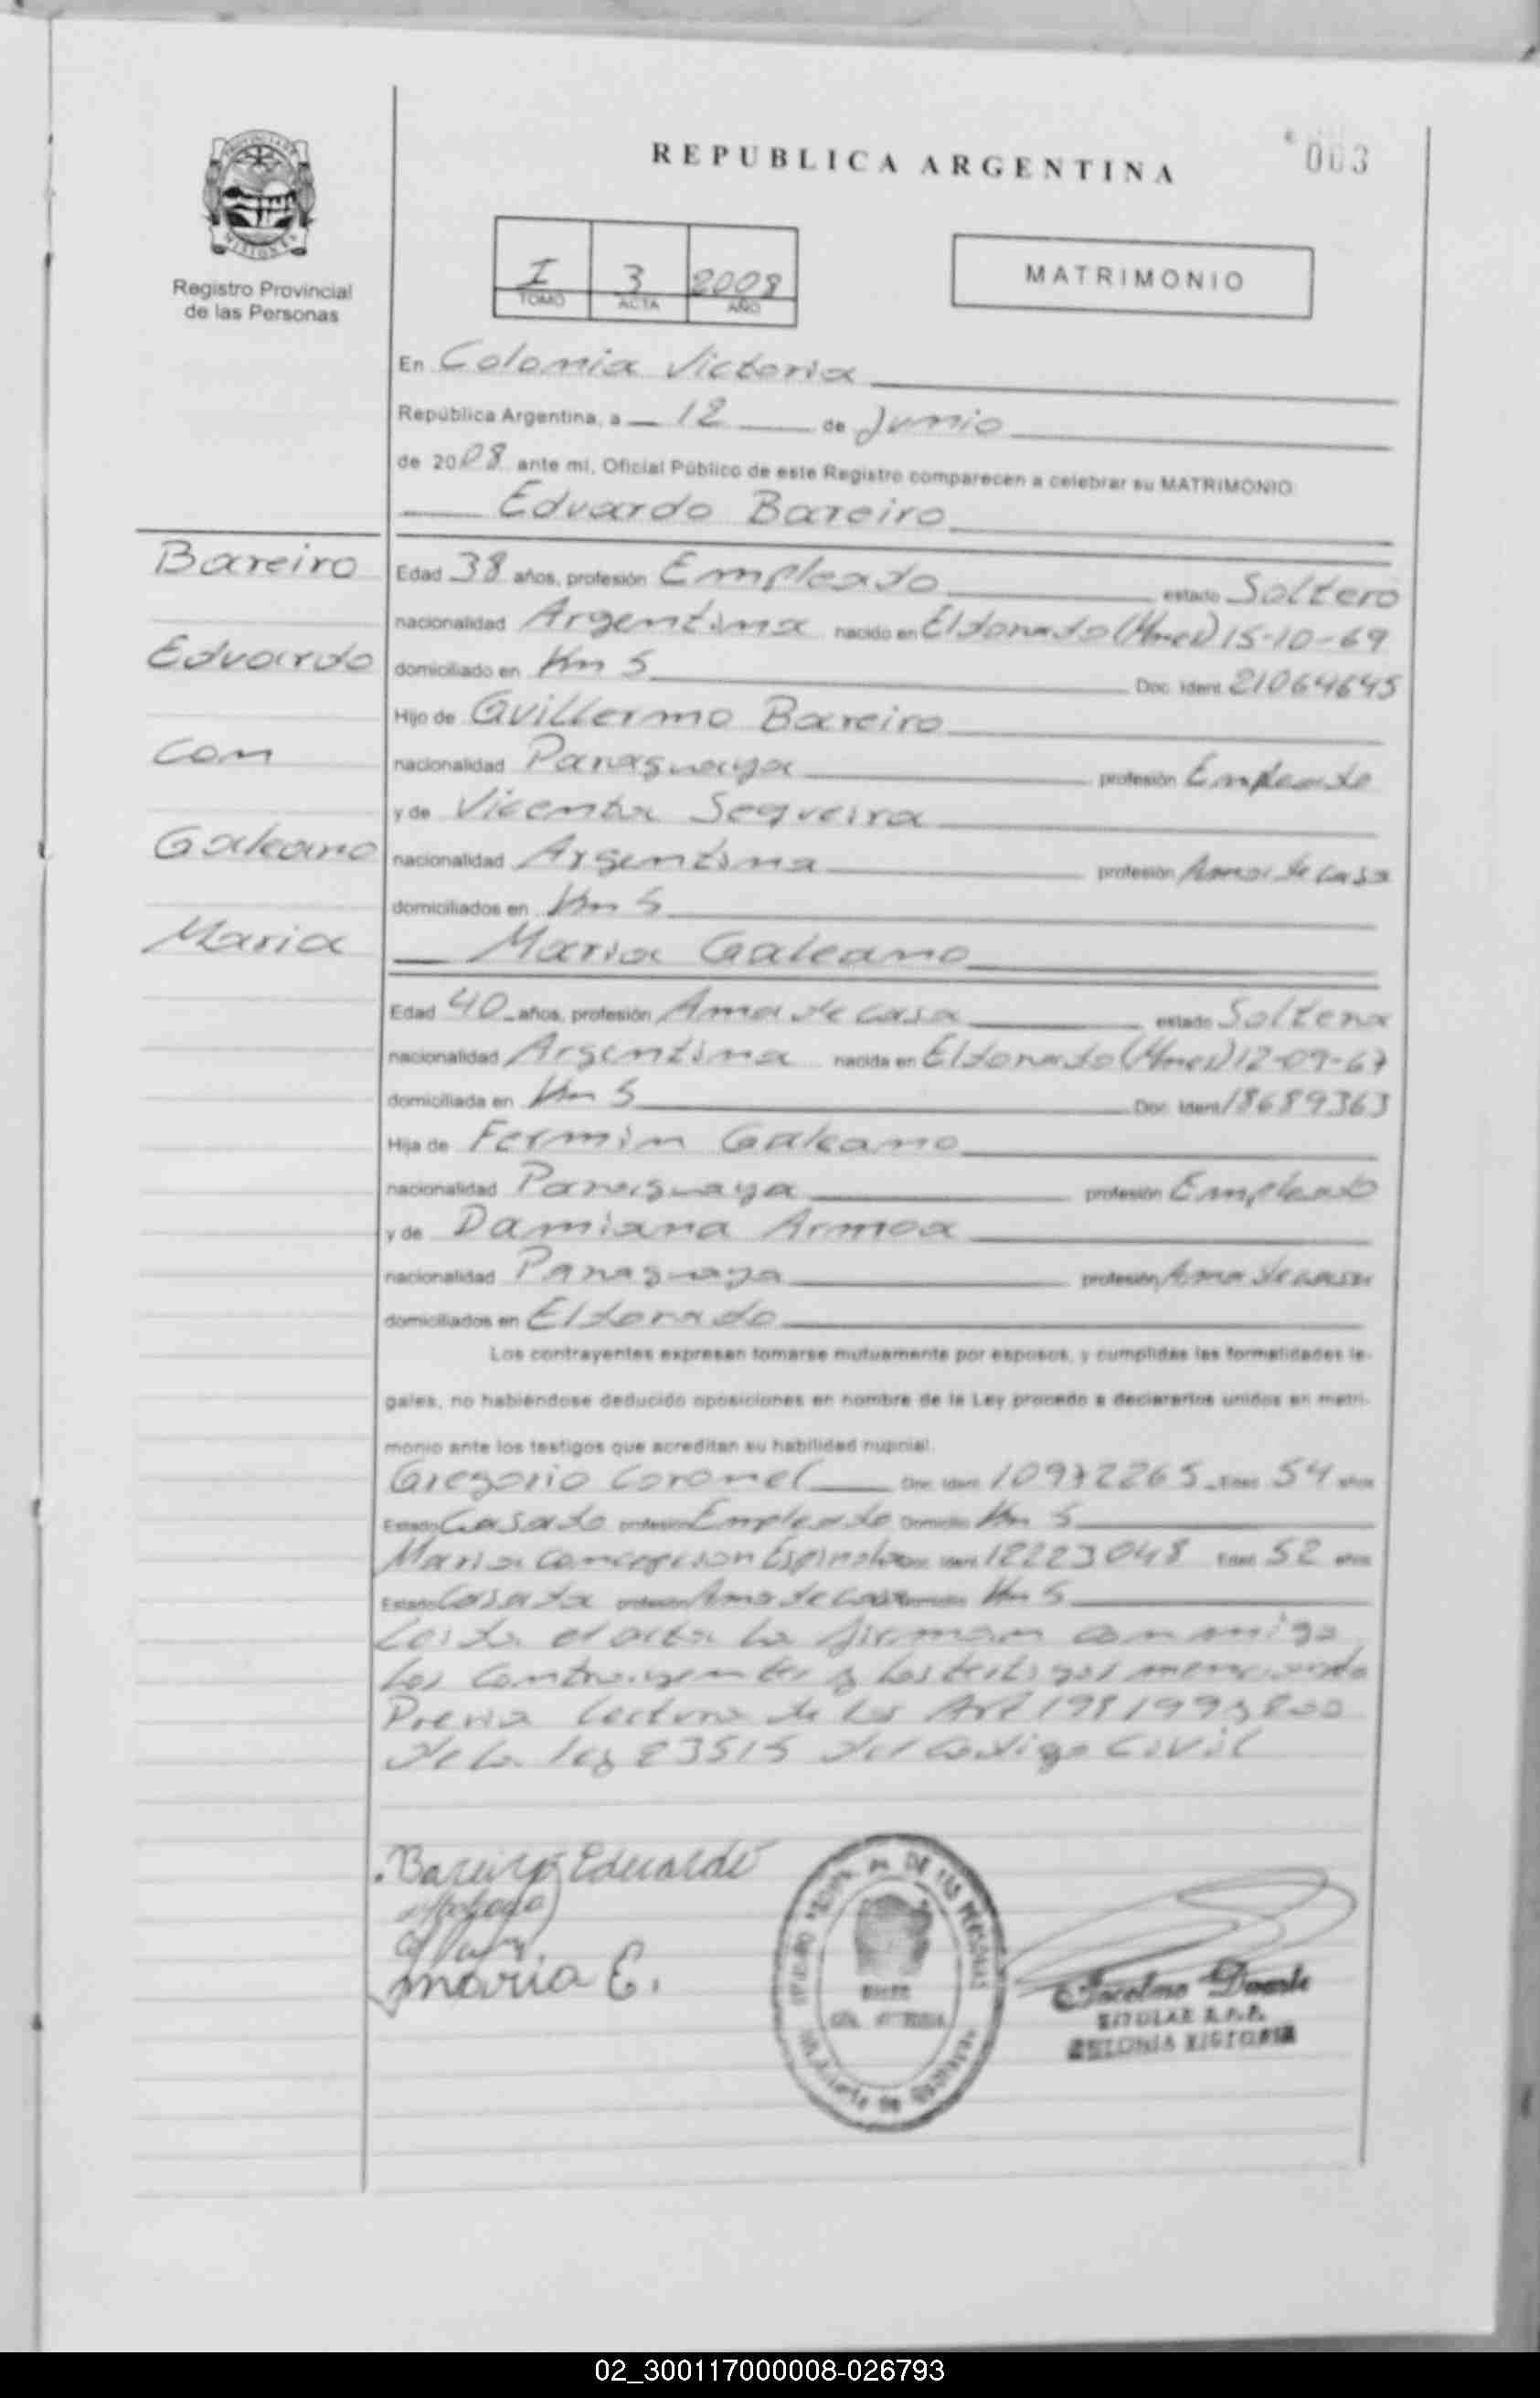 REPUBLICA ARGENTINA
003
PROVINCIA DE
MISIONES
Registro Provincial
de las Personas
I 3 2008
TOMO ACTA AÑO
MATRIMONIO
En Colonia Victoria
República Argentina, a 12 de Junio
de 2008 ante mí, Oficial Público de este Registro comparecen a celebrar su MATRIMONIO:
Eduardo Bareiro
Bareiro
Eduardo
con
Galeano
Maria
Edad 38 años, profesión Empleado estado Soltero
nacionalidad Argentina nacido en Eldorado (Mnes) 15-10-69
domiciliado en Km 5 Doc. Ident. 21064645
Hijo de Guillermo Bareiro
nacionalidad Paraguaya profesión Empleado
y de Vicenta Sequeira
nacionalidad Argentina profesión Ama de casa
domiciliados en Km 5
Maria Galeano
Edad 40 años, profesión Ama de casa estado Soltera
nacionalidad Argentina nacida en Eldorado (Mnes) 12-09-67
domiciliada en Km 5 Doc. Ident. 18689363
Hija de Fermin Galeano
nacionalidad Paraguaya profesión Empleado
y de Damiana Armoa
nacionalidad Paraguaya profesión Ama de casa
domiciliados en Eldorado
Los contrayentes expresan tomarse mutuamente por esposos, y cumplidas las formalidades le-
gales, no habiéndose deducido oposiciones en nombre de la Ley procedo a declararlos unidos en matri-
monio ante los testigos que acreditan su habilidad nupcial.
Gregorio Coronel Doc. Ident. 10972265 Edad 54 años
Estado Casado profesión Empleado Domicilio Km 5
Maria Concepcion Espinola Doc. Ident. 12223048 Edad 52 años
Estado Casada profesión Ama de casa Domicilio Km 5
Leida el acta la firman conmigo
los contrayentes y los testigos mencionado
Previa lectura de los Art 198 199 y 200
de la ley 23515 del codigo Civil
Bareiro Eduardo
maria E.
DE LAS PERSONAS
Duarte
TITULAR R.P.P.
COLONIA VICTORIA
02_300117000008-026793